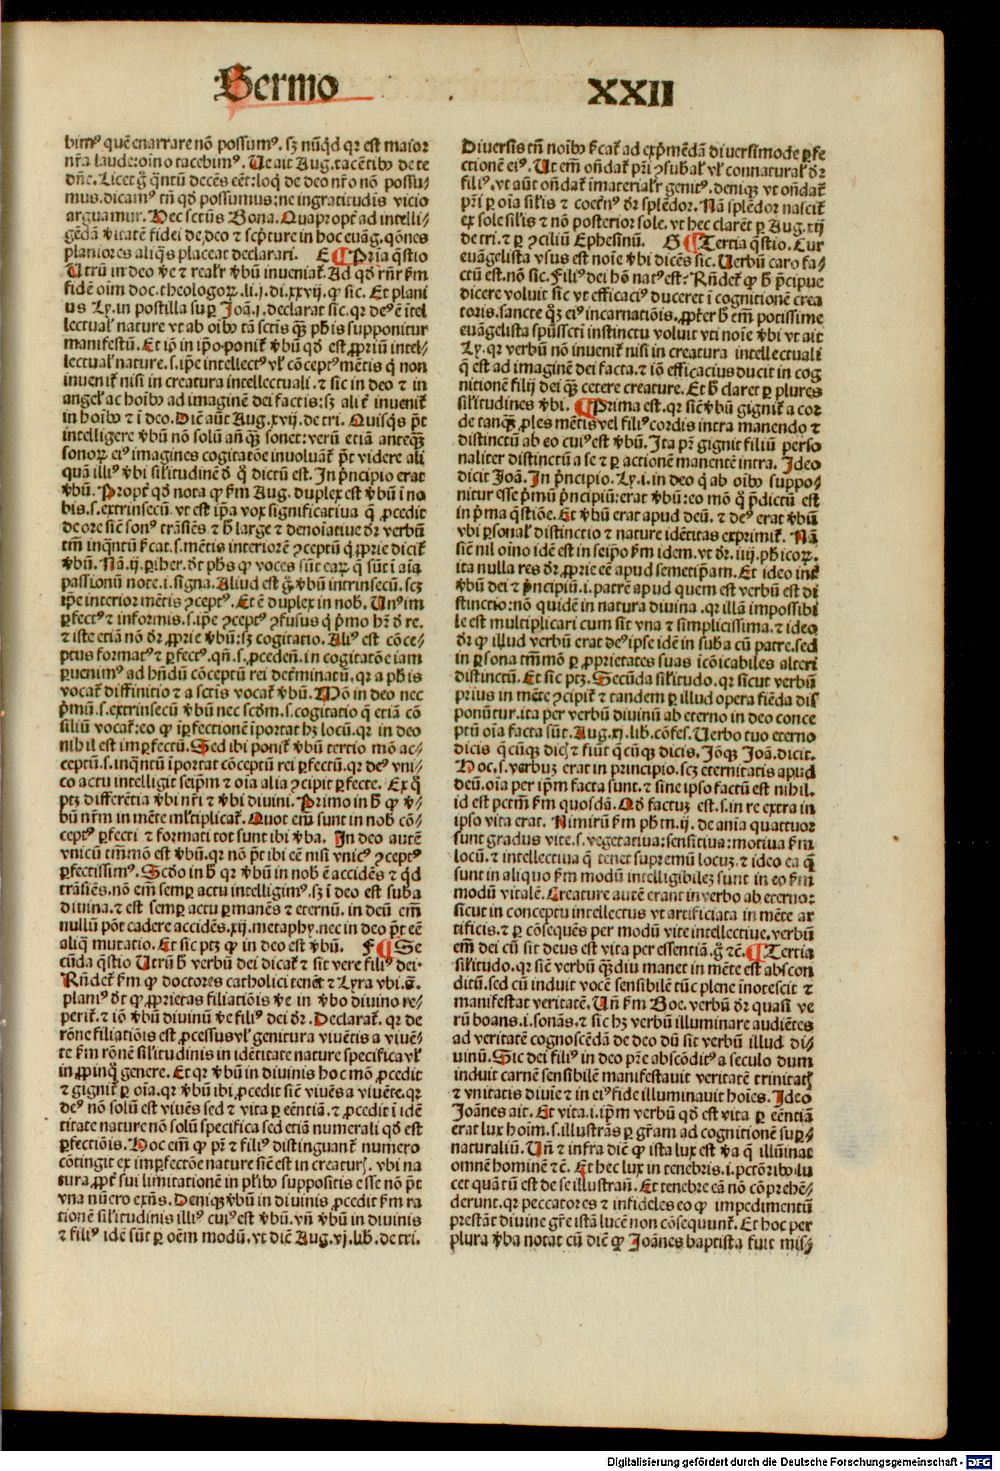 Sermo XXII
bimꝰ quē enarrare nō possumꝰ. sꝫ nūqͥd qꝛ est maior
nr̄a laude: oīno tacebimꝰ. Ve ait Aug. tacētibꝰ de te
dn̄e. Licet gͦ qn̄tū decēs eēt: loqͥ de deo nr̄o nō possu⸗
mus. dicamꝰ tn̄ qd̄ possumus: ne ingratitudis vicio
arguamur. Hec sctūs Bona. Quapropt̄ ad intelli⸗
gēdā vītatē fidei de deo ⁊ scpture in hoc euāg. qōnes
planiores aliqͣs placeat declarari. E ¶ Pria qͣstio
Utrū in deo ve ⁊ realr̄ vbū inueniat̉. Ad qd̄ rn̄r ẜm
fidem oīm doc. theologoꝝ. li. j. di. xxvij. ꝙ sic. Et plani
us Ly. in postilla suꝑ Joā. j. declarat sic. qꝛ deꝰ ē ītel
lectualꝭ nature vt ab oībꝰ tā sctis qͣꝫ phis supponitur
manifestū. Et iō in ip̄o ponit̉ vbū qd̄ est ꝓpriū intel⸗
lectualꝭ nature. s. ip̄e intellectꝰ vl̓ cōceptꝰ mētis qͥ non
inuenit̉ nisi in creatura intellectuali. ⁊ sic in deo ⁊ in
angelꝭ ac hoībꝰ ad imaginem dei factis: sꝫ alit̄ inuenit̉
in hoībꝰ ⁊ ī deo. Diē aūt Aug. xvij. de tri. Quisqͥs pt̄
intelligere vbū nō solū an̄ qͣꝫ sonet: verū etiā anteqͣꝫ
sonoꝝ eiꝰ imagines cogitatōe inuoluāt̉ pt̄ videre ali
quā illiꝰ vbi silitudinē d̄ qͦ dictū est. In pͥncipio erat
vbū. Propt̄ qd̄ nota ꝙ ẜm Aug. duplex est vbū ī no
bis. s. extrinsecū. vt est ip̄a vox significatiua qͤ ꝓcedit
de ore sicut sonꝰ trāsiēs ⁊ h̄ large ⁊ denoīatiue dr̄ verbū
tm̄ inqͣntū sigͣt. s. mētis interiorē ꝯceptū qͥ ꝓprie dicit̉
vbū. Nā. ij. ꝑiher. dt phs ꝙ voces sūt eaꝝ qͤ sūt ī aīa
passionū note. i. signa. Aliud est gͦ vbū intrinsecū. scꝫ
ip̄e interior mētis ꝯceptꝰ. Et ē duplex in nob̄. Unꝰ im
ꝑfectꝰ ⁊ informis. s. ip̄e ꝯceptꝰ ꝯfusus qͥ pͥmo hr̄ d̄ re.
⁊ iste etiā nō dr̄ ꝓprie vbū: sꝫ cogitatio. Aliꝰ est cōce⸗
ptus formatꝰ ⁊ ꝑfectꝰ. qn̄. s. ꝓcedēn. in cogitatōe iam
ꝑuenimꝰ ad hn̄dū cōceptū rei det̄minatū. qꝛ a phis
vocat̉ diffinitio ⁊ a sctis vocat̉ vbū. Mō in deo nec
pͥmū. s. extrinsecū vbū nec scd̄m. s. cogitatio qͤ etiā cō
siliū vocat̉: eo ꝙ īꝑfectionē īportat hꝫ locū. qꝛ in deo
nihil est imꝑfectū. Sed ibi ponit̉ vbū tercio mō ac⸗
ceptū. s. inqͣntū īportat cōceptū rei ꝑfectū. qꝛ deꝰ vni⸗
co actu intelligit seip̄m ⁊ oīa alia ꝯcipit ꝑfecte. Ex qͦ
ptꝫ differētia vbi nr̄i ⁊ vbi diuini. Primo in h̄ ꝙ v⸗
bū nr̄m in mēte ml̓tiplicat̉. Quot em̄ sunt in nob̄ cō⸗
ceptꝰ ꝑfecti ⁊ formati tot sunt ibi vba. In deo autē
vnicū tm̄mō est vbū. qꝛ nō pt̄ ibi eē nisi vnicꝰ ꝯceptꝰ
ꝑfectissimꝰ. Scd̄o in h̄ qꝛ vbū in nob̄ ē accidēs ⁊ qd̄
trāsiēs. nō em̄ semꝑ actu intelligimꝰ. sꝫ ī deo est suba
diuina. ⁊ est semꝑ actu ꝑmanēs ⁊ eternū. in deū em̄
nullū pōt cadere accidēs. xij. metaphy. nec in deo pt̄ eē
aliqͣ mutatio. Et sic ptꝫ ꝙ in deo est vbū. F ¶ Se
cūda qͣstio Utrū h̄ verbū dei dicat̉ ⁊ sit vere filiꝰ dei.
Rn̄det̉ ẜm ꝙ doctores catholici tenēt ⁊ Lyra vbi. s̄.
planiꝰ dt ꝙ ꝓprietas filiatiōis ve in vbo diuino re⸗
perit̉. ⁊ iō vbū diuinū ve filiꝰ dei dr̄. Declarat̉. qꝛ de
rōne filiatiōis est ꝓcessus vl̓ genitura viuētis a viuē⸗
te ẜm rōnē silitudinis in idētitate nature specifica vl̓
in ꝓpinqͦ genere. Et qꝛ vbū in diuinis hoc mō ꝓcedit
⁊ gignit̉ ꝑ oīa. qꝛ vbū ibi ꝓcedit sicut viuēs a viuēte. qꝛ
deꝰ nō solū est viuēs sed ⁊ vita ꝑ eēntiā. ⁊ ꝓcedit ī idē
titate nature nō solū specifica sed etiā numerali qd̄ est
ꝑfectiōis. Hoc em̄ ꝙ pr̄ ⁊ filiꝰ distinguant̉ numero
cōtingit ex imꝑfectōe nature sicut est in creaturꝭ. vbi na
tura. ꝓpt̄ sui limitationē in pl̓ibꝰ suppositis esse nō pt̄
vna nūero exn̄s. Deniqꝫ vbū in diuinis ꝓcedit ẜm ra
tionē silitudinis illiꝰ cuiꝰ est vbū. vn̄ vbū in diuinis
⁊ filiꝰ idē sūt ꝑ oēm modū. vt diē Aug. vj. lib. de tri.
Diuersis tn̄ noībꝰ sigͣt̉ ad expͥmēdā diuersimode ꝑfe
ctionē eiꝰ. Ut em̄ on̄dat̉ pr̄i ꝯsubal̓ vl̓ connatural̓ dr̄
filiꝰ. vt aūt on̄dat̉ imaterialr̄ genitꝰ. deniqꝫ vt on̄dat̉
pr̄i ꝑ oīa silis ⁊ coetn̄ꝰ dr̄ splēdor. Nā splēdor nascit̉
ex sole silis ⁊ nō posterior sole. vt hec claret ꝑ Aug. xij
de tri. ⁊ ꝑ ꝯciliū Ephesinū. G ¶ Tertia qͣstio. Cur
euāgelista vsus est noīe vbi dicēs sic. Verbū caro fa⸗
ctū est. nō sic. Filiꝰ dei hō natꝰ est? Rn̄det̉ ꝙ h̄ pͥncipue
dicere voluit sic vt efficaciꝰ duceret ī cognitionē crea
toris. sancte qͣꝫ eiꝰ incarnatiōis. ꝓpter h̄ em̄ potissime
euāgelista spūssctī instinctu voluit vti noīe vbi vt ait
Ly. qꝛ verbū nō inuenit̉ nisi in creatura intellectuali
qͤ est ad imaginē dei facta. ⁊ iō efficacius ducit in cog
nitionē filij dei qͣꝫ cetere creature. Et h̄ claret ꝑ plures
silitudines vbi. ¶ Prima est. qꝛ sicut vbū gignit̉ a cor
de tanqͣꝫ ꝓles mētis vel filiꝰ cordis intra manendo ⁊
distinctū ab eo cuiꝰ est vbū. Ita pr̄ gignit filiū perso
naliter distinctū a se ⁊ ꝑ actionē manentē intra. Ideo
dicit Joā. In pͥncipio. Ly. i. in deo qͥ ab oībꝰ suppo⸗
nitur esse pͥmū pͥncipiū: erat vbū: eo mō qͦ pͥdictū est
in pͥma qͣstiōe. Et vbū erat apud deū. ⁊ deꝰ erat vbū
vbi ꝑsonal̓ distinctio ⁊ nature idētitas exprimit̉. Nā
sicut nil oīno idē est in seip̄o ẜm idem. vt dr̄. iiij. phīcoꝝ.
ita nulla res dr̄. ꝓprie eē apud semetip̄am. Et ideo int̄
vbū dei ⁊ pͥncipiū. i. patrē apud quem est verbū est di
stinctio: nō quidē in natura diuina. qꝛ illā impossibi
le est multiplicari cum sit vna ⁊ simplicissima. ⁊ ideo
dr̄ ꝙ illud verbū erat deꝰ ipse idē in suba cū patre. sed
in ꝑsona tm̄mō ꝑ ꝓprietates suas īcōicabiles alteri
distinctū. Et sic ptꝫ. Secūda silitudo. qꝛ sicut verbū
prius in mēte ꝯcipit̉ ⁊ tandem ꝑ illud opera fiēda dis
ponūtur. ita per verbū diuinū ab eterno in deo conce
ptū oīa facta sūt. Aug. xj. lib. cōfes. Verbo tuo eterno
dicis qͤcūqꝫ dicꝭ ⁊ fiūt qͤcūqꝫ dicis. Jōqꝫ Joā. dicit.
Hoc. s. verbuꝫ erat in principio. scꝫ eternitatis apud
deū. oīa per ip̄m facta sunt. ⁊ sine ipso factū est nihil.
id est pctm̄ ẜm quosdā. Qd̄ factuꝫ est. s. in re extra in
ipso vita erat. Nimirū ẜm phm. ij. de aīa quattuor
sunt gradus vite. s. vegetatiua: sensitiua: motiua ẜm
locū. ⁊ intellectiua qͤ tenet supremū locuꝫ. ⁊ ideo ea qͤ
sunt in aliquo ẜm modū intelligibileꝫ sunt in eo ẜm
modū vitalē. Creature autē erant in verbo ab eterno:
sicut in conceptu intellectus vt artificiata in mēte ar
tificis. ⁊ ꝑ cōsequēs per modū vite intellectiue. verbū
em̄ dei cū sit deus est vita per essentiā. gͦ ⁊ē. ¶ Tertia
silitudo. qꝛ sicut verbū qͣꝫdiu manet in mēte est abscon
ditū. sed cū induit vocē sensibilē tūc plene inotescit ⁊
manifestat veritatē. Un̄ ẜm Boe. verbū dr̄ quasi ve
rū boans. i. sonās. ⁊ sic hꝫ verbū illuminare audiētes
ad veritatē cognoscēdā de deo dū sit verbū illud di⸗
uinū. Sic dei filiꝰ in deo pr̄e abscōditꝰ a seculo dum
induit carnē sensibilē manifestauit veritatē trinitatꝭ
⁊ vnitatis diuīe ⁊ in eiꝰ fide illuminauit hoīes. Ideo
Joānes ait. Et vita. i. ip̄m verbū qd̄ est vita ꝑ eēntiā
erat lux hoīm. s. illustrās ꝑ grām ad cognitionē suꝑ⸗
naturaliū. Un̄ ⁊ infra diē ꝙ ista lux est va qͤ illūinat
omnē hominē ⁊ē. Et hec lux in tenebris. i. pctōribꝰ lu
cet quātū est de se illustrāū. Et tenebre eā nō cōprehē⸗
derunt. qꝛ peccatores ⁊ infideles eo ꝙ impedimentū
prestāt diuine gr̄e istā lucē non cōsequunt̉. Et hoc per
plura vba notat cū diē ꝙ Joānes baptista fuit mis⸗
Digitalisierung gefördert durch die Deutsche Forschungsgemeinschaft - DFG